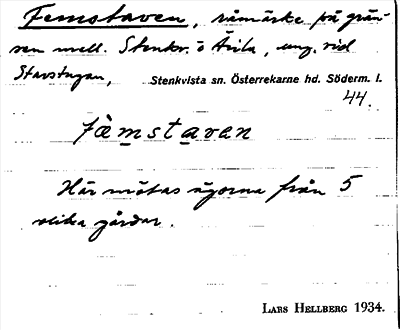 Femstaven, råmärke på grän-
sen mell. Stenkv. o Ärila, ung. vid
Stavstugan, Stenkvista sn. Österrekarne hd. Söderm. l.
44.
fämstaven
Här mötas ägorna från 5
olika gårdar.
LARS HELLBERG 1934.